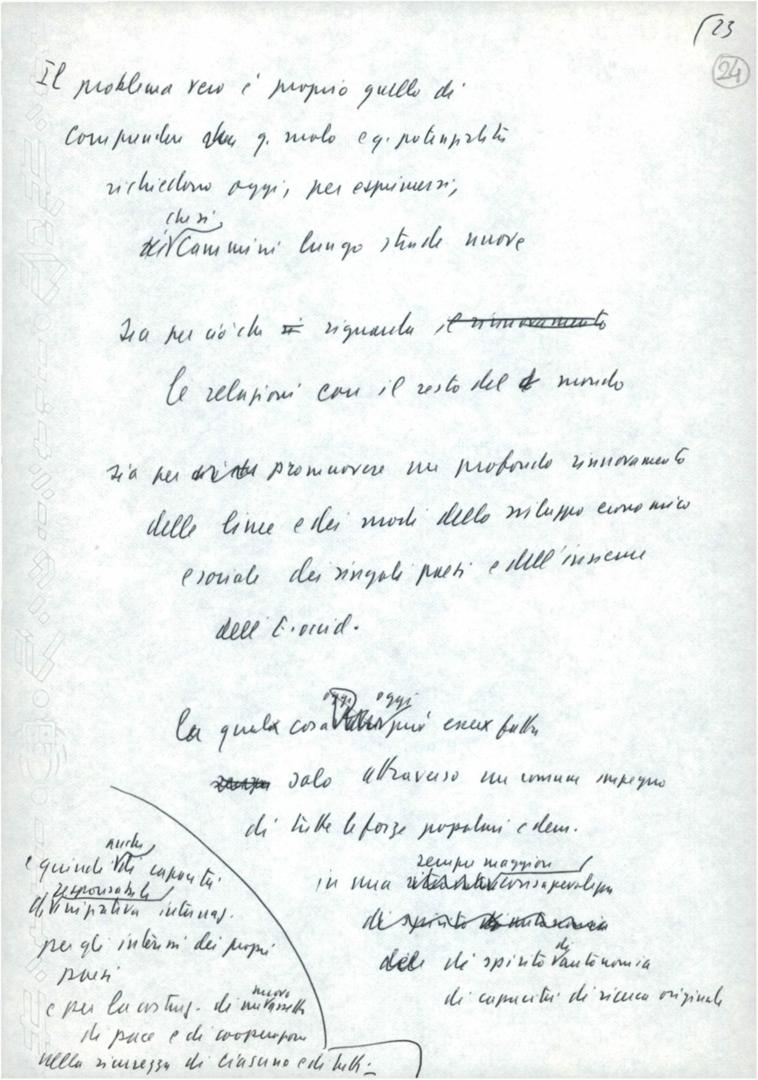 23
24
Il problema vero è proprio quello di
comprendere che q. ruolo e q. potenzialità
richiedono oggi, per esprimersi,
che si
cammini lungo strade nuove
Sia per ciò che riguarda il rinnovamento
le relazioni con il resto del mondo
sia per promuovere un profondo rinnovamento
delle linee e dei modi dello sviluppo economico
e sociale dei singoli paesi e dell'insieme
dell'E. occid.
oggi oggi
la qual cosa può esser fatta
solo attraverso un comune impegno
di tutte le forze popolari e dem.
sempre maggiore
in una consapevolezza
di spirito
di
di spirito autonomia
di capacità di ricerca originale
anche
e quindi di capacità
responsabile
d'iniziativa internaz.
per gli interessi dei propri
paesi
nuovo
e per la costruz. di un assetto
di pace e di cooperazione
nella sicurezza di ciascuno e di tutti.